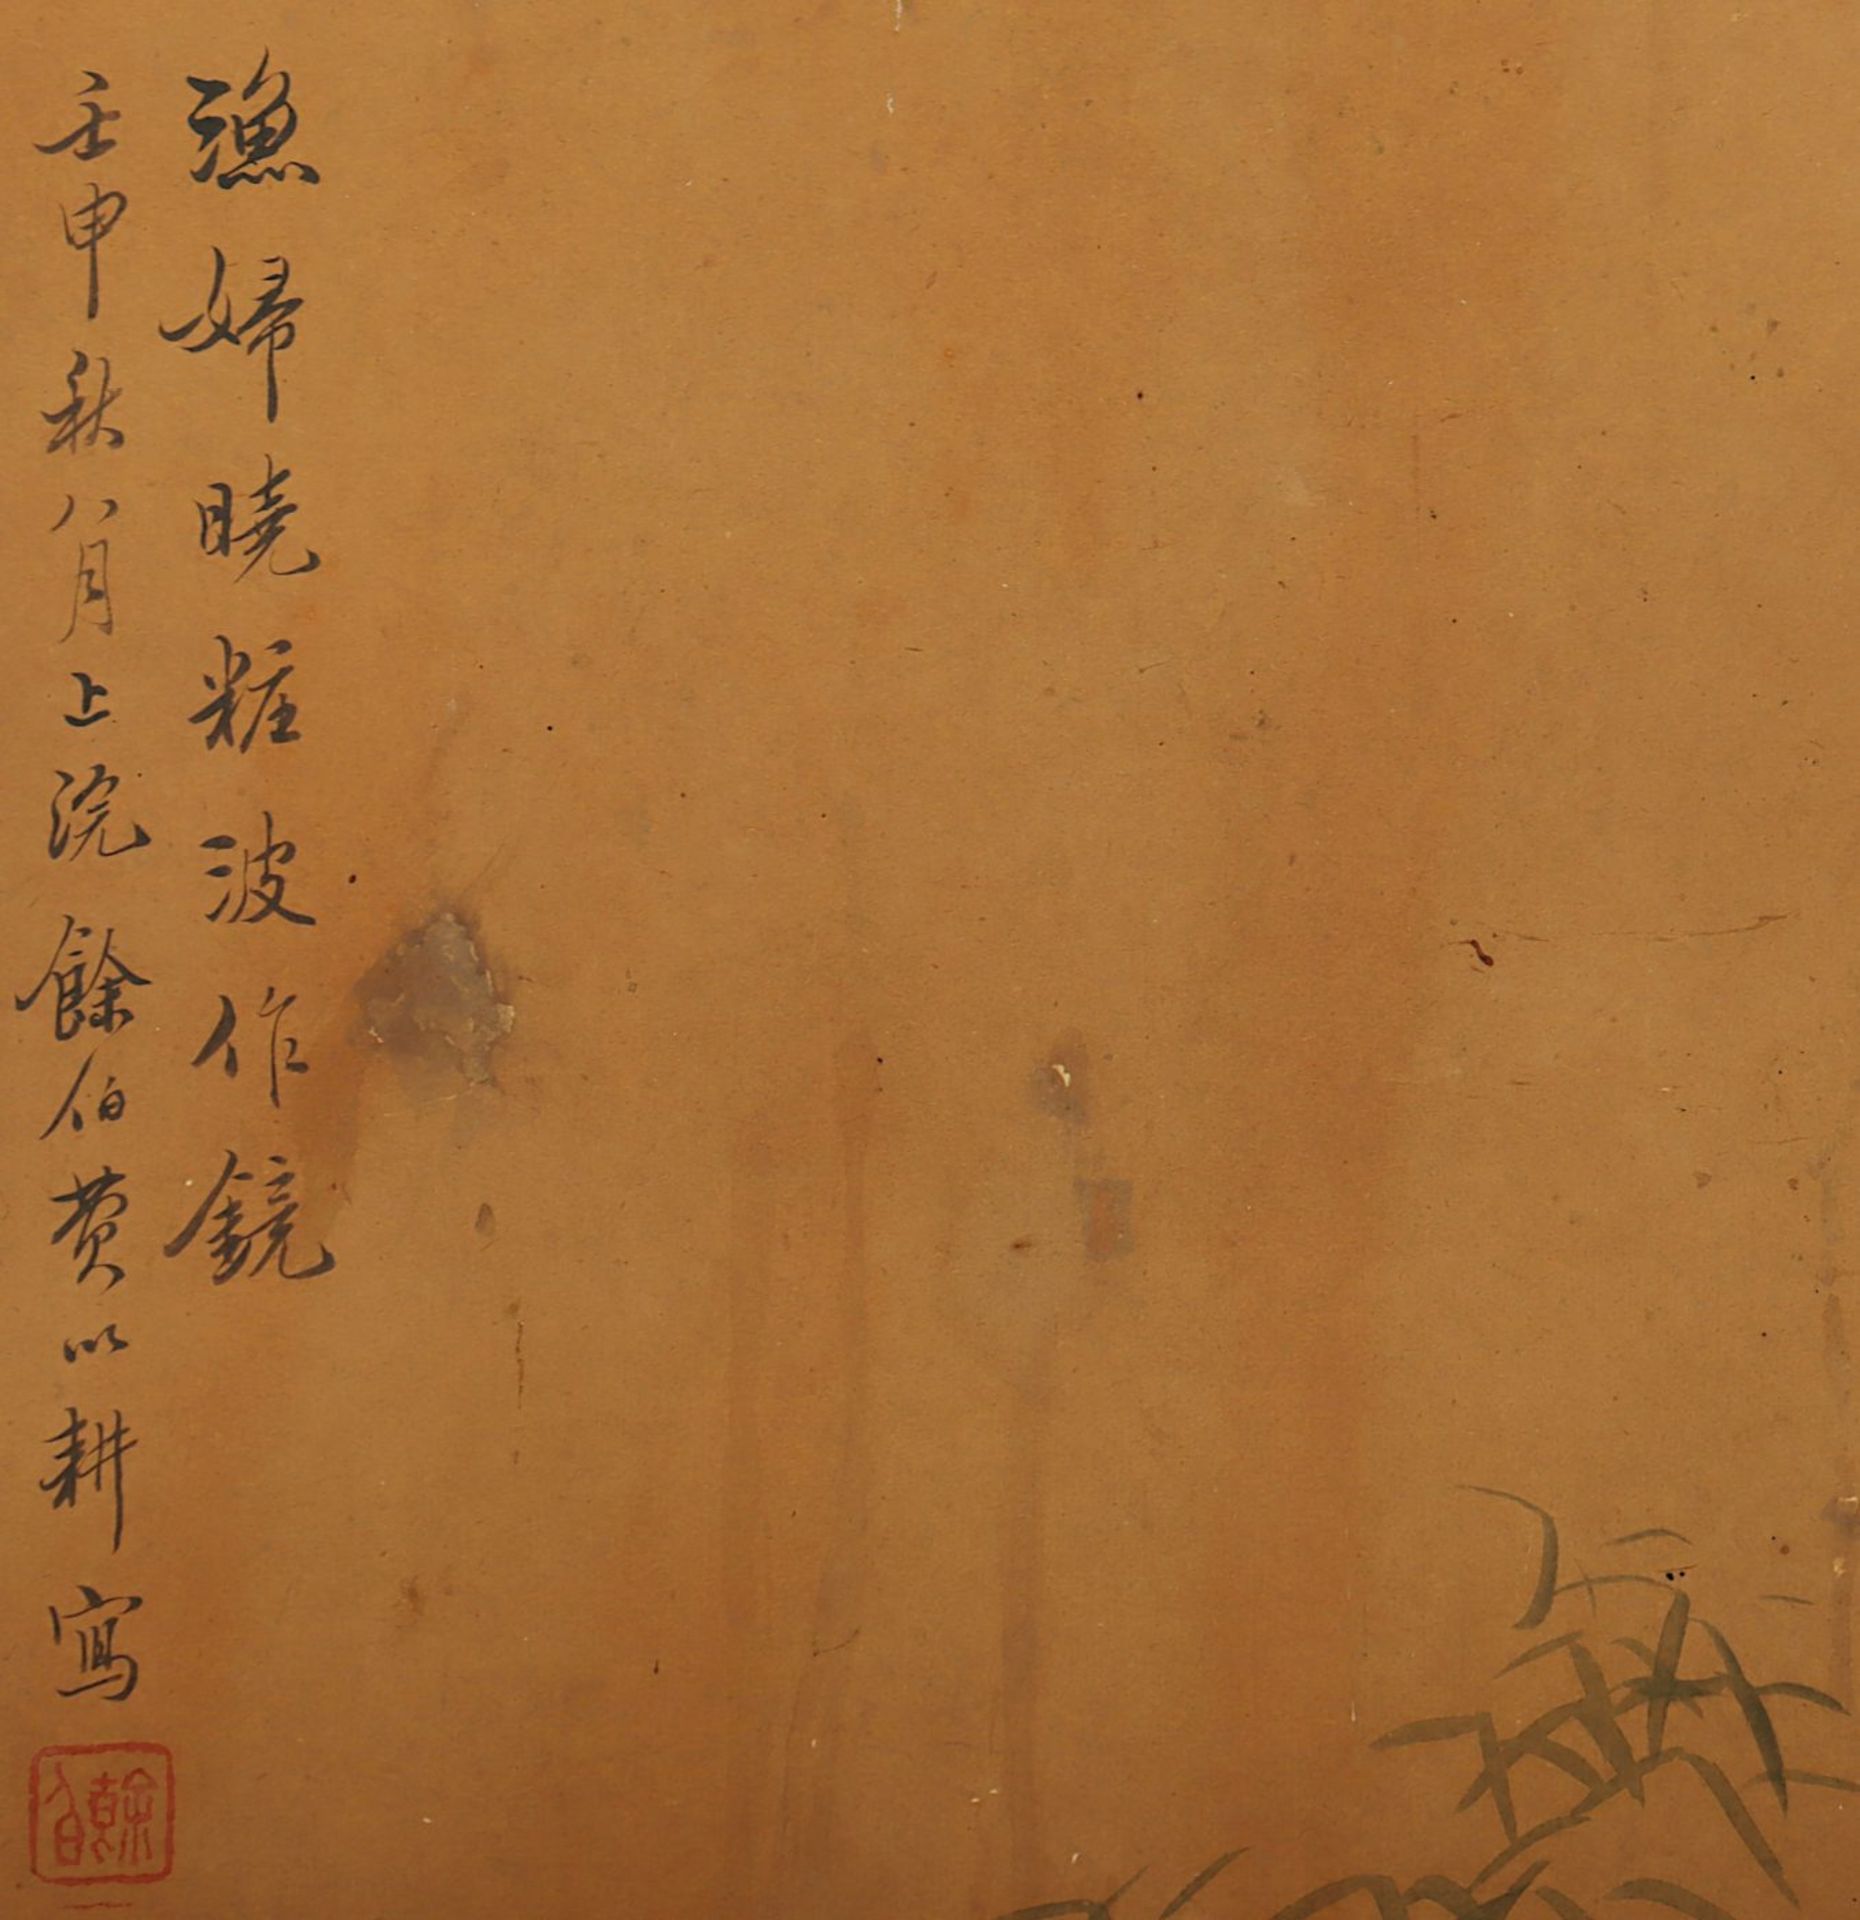 漁婦曉粧波作鏡
壬申秋八月上浣餘伯費以耕寫
餘伯